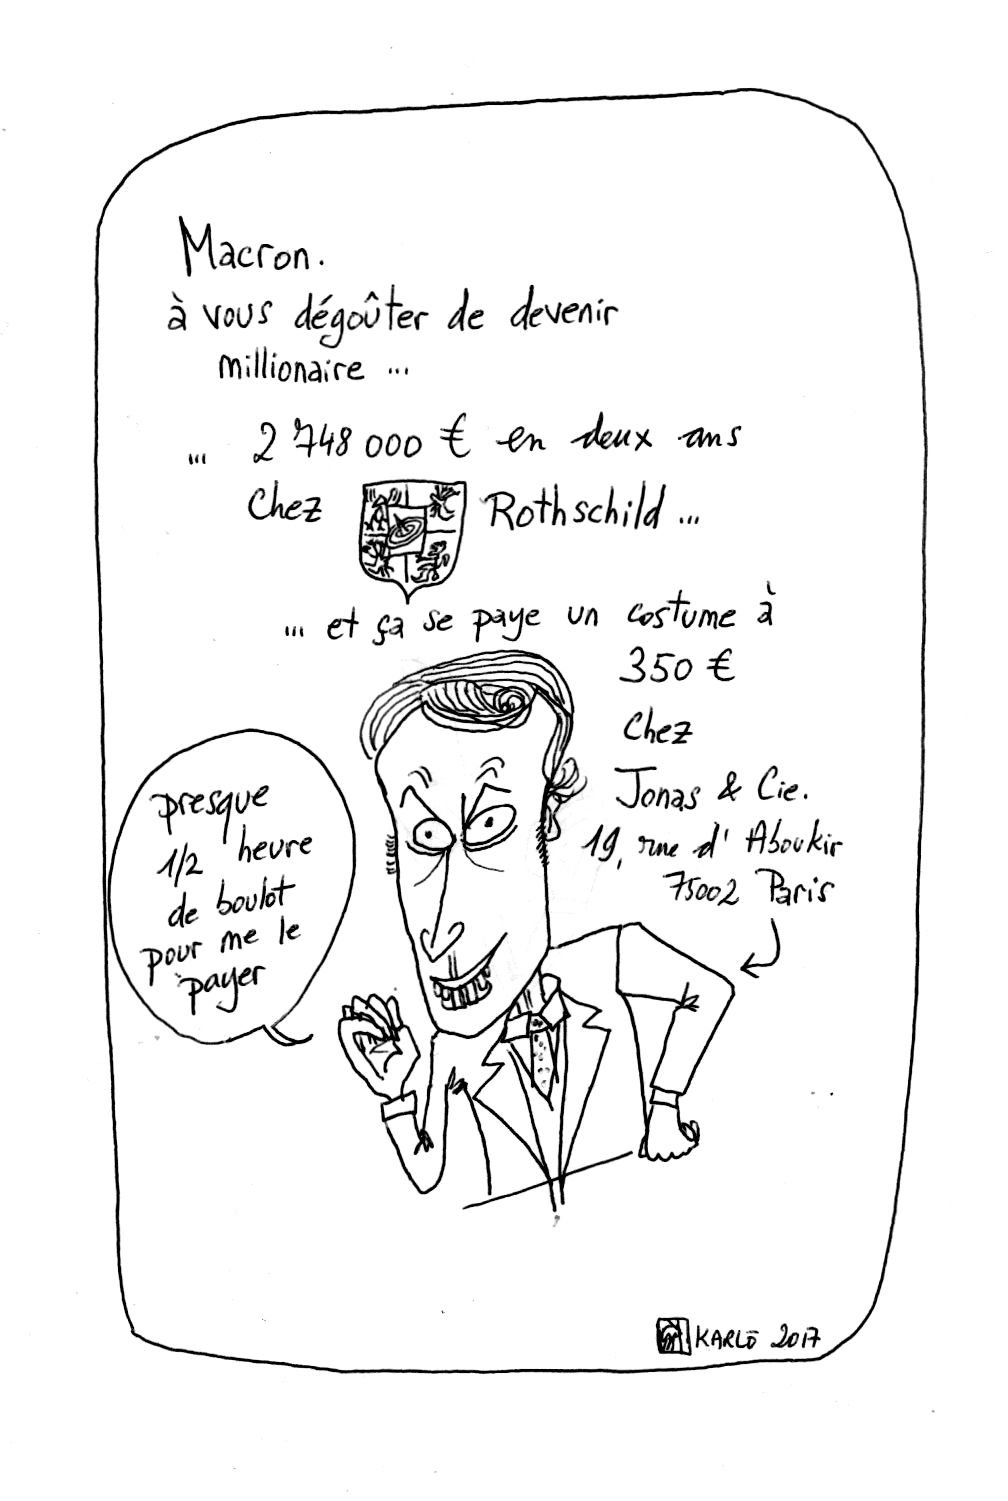 Macron.
à vous dégoûter de devenir
millionaire ...
... 2 748 000 € en deux ans
chez Rothschild ...
... et ça se paye un costume à
350 €
chez
Jonas & Cie.
19, rue d' Aboukir
75002 Paris
presque
1/2 heure
de boulot
pour me le
payer
KARLO 2017